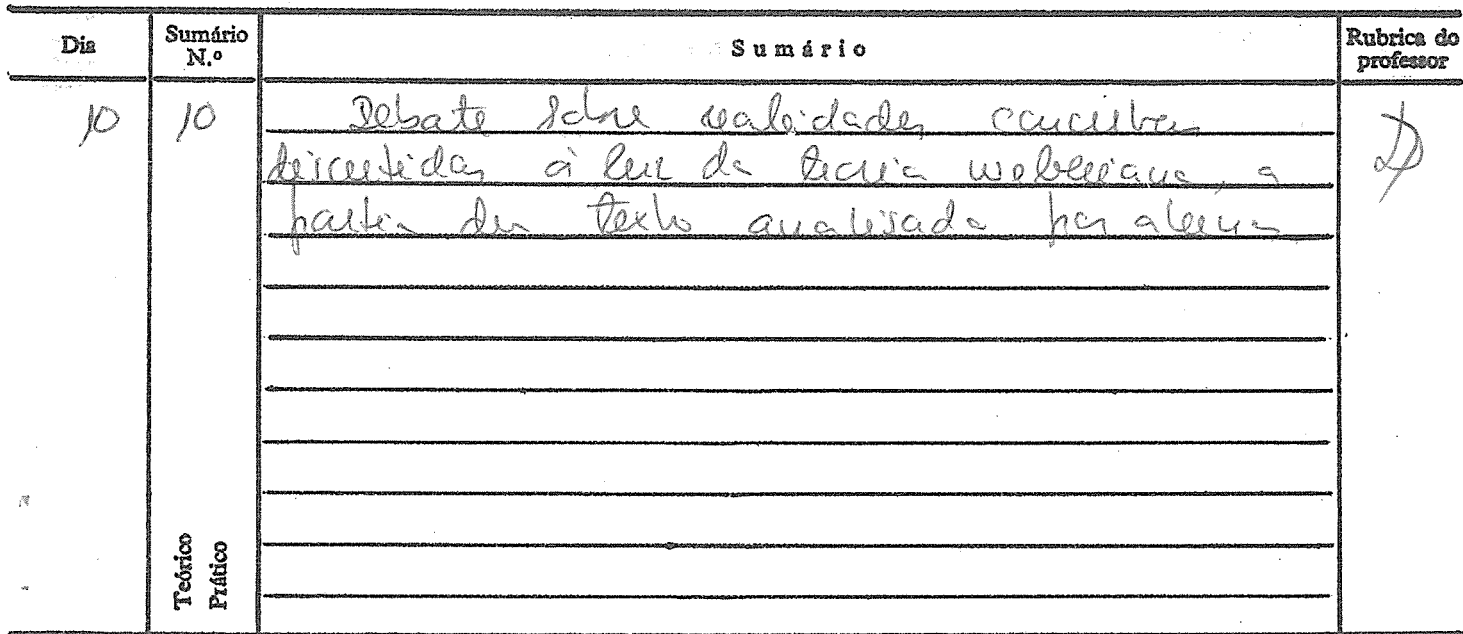 Dia
Sumário N.º
Sumário
Rubrica do professor
10
10
Debate sobre realidades concretas
discutidas à luz da teoria weberiana, a
partir de texto analisado por alguns
Teórico
Prático